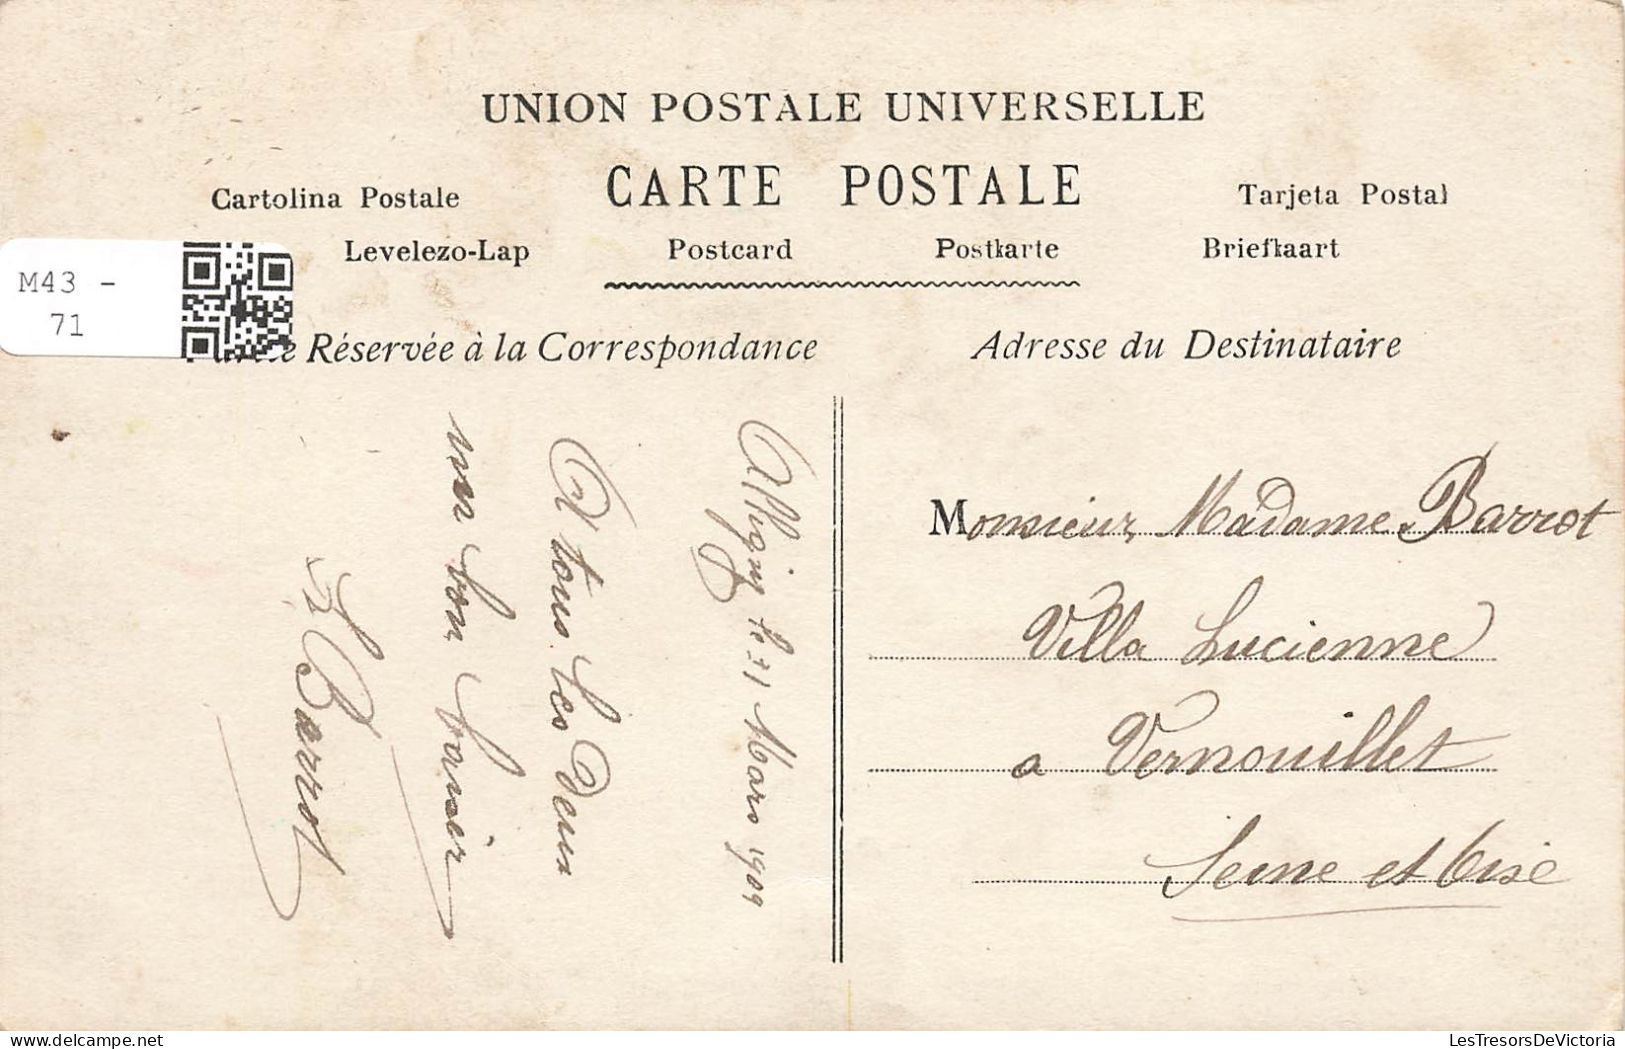 UNION POSTALE UNIVERSELLE
CARTE POSTALE
Cartolina Postale
Tarjeta Postal
Levelezo-Lap
Postcard
Postkarte
Briefkaart
M43 -
71
Réservée à la Correspondance
Adresse du Destinataire
le 31 Mars 1909
A tous les deux
un bon baiser
Barrot
Monsieur, Madame Barrot
Villa Lucienne
a Vernouillet
Seine et Oise
LesTresorsDeVictoria